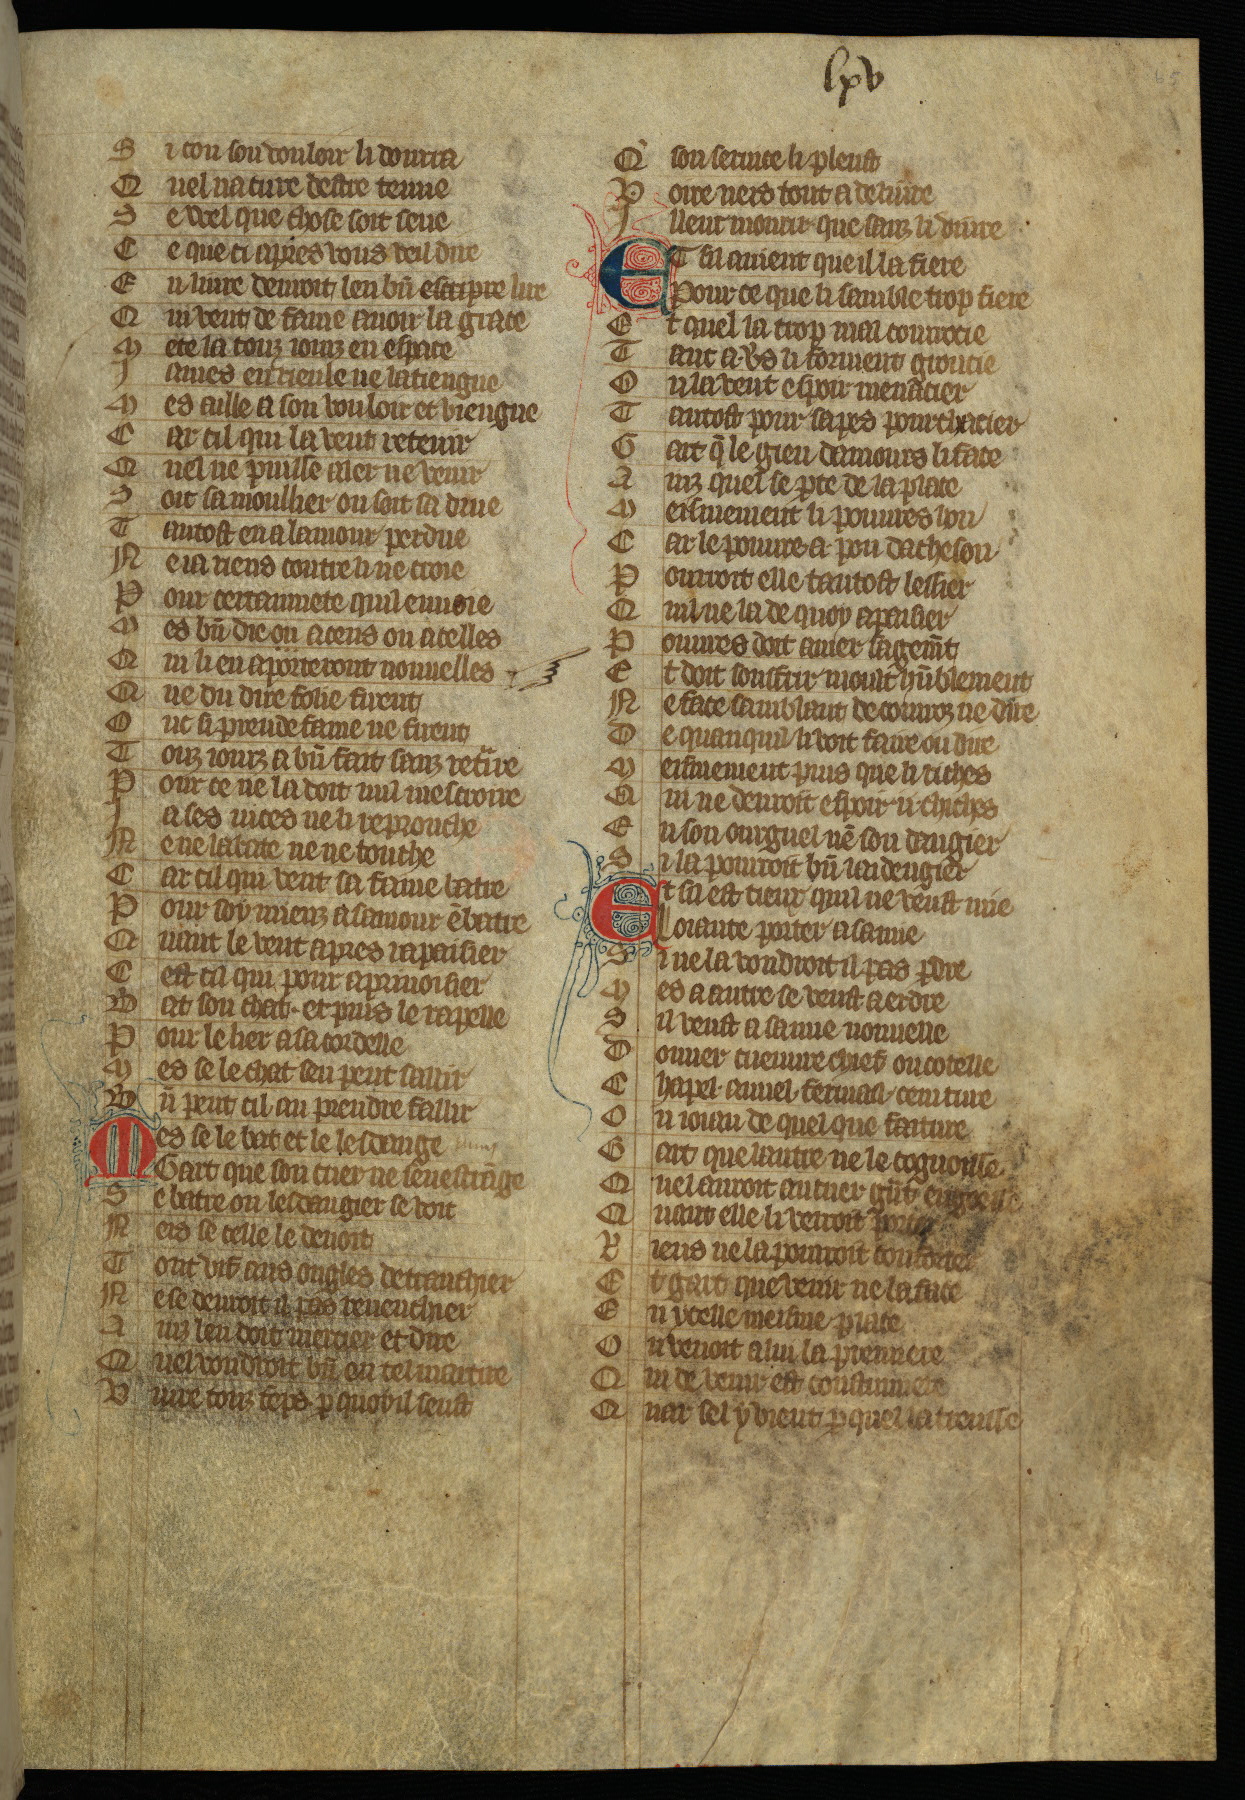 lxv
65
Si con son vouloir li dourra
Quel na cure destre tenue
Se viel que chose soit seue
Ce que ci apres vous veil dire
En livre devroit len bn̄ escripre lire
Qui veut de fame avoir la grace
Mete la touz iours en espace
James en rieule ne la tiengne
Mes aille a son vouloir et viengne
Car cil qui la veut retenir
Quel ne puisse aler ne venir
Soit sa moullier ou soit sa drue
Tantost en a lamour perdue
Ne ia riens contre li ne croie
Pour certainnete quil en noie
Mes bn̄ die ou a ceus ou a celles
Qui li en aporteront nouvelles
Que du dire folie firent
Conc si preude fame ne firent
Touz iours a bn̄ fait sanz retrire
Pour ce ne la doit nul mescroire
Ja ses vices ne li reprouche
Ne ne la bate ne ne touche
Car cil qui veut sa fame batre
Pour soy mieuz a samour ēbatre
Quant le veut apres rapaisier
Cest cil qui pour aprivoisier
Bat son chat et puis le rapelle
Pour le lier a sa cordelle
Mes se le chat sen peut saillir
Bn̄ peut cil au prendre faillir
Mes se le bat et le lesdange
Gart que son cuer ne sen estrāge
Se batre ou lesdangier se voit
Neis se celle le devoit
Tout vif aus ongles detranchier
Ne se devroit il pas revenchier
Ainz len doit mercier et dire
Quel voudroit bn̄ en tel martire
Vivre touz tēps p quoy il seust
Q son service li pleust
Voire neis tout a delivre
Il leut mourir que sanz li divre
Et sil avient que il la fiere
Pour ce que li samble trop fiere
Et quel la trop mal courrocie
Tant a vs li forment groucie
Ou la veut espoir menacier
Tantost pour sa pes pourchacier
Gart q̄ le gieu damours li face
Ainz quel se pte de la place
Meismement li povres hon
Car le povre a pou dacheson
Pourroit elle tantost lessier
Quil ne la de quoy apaisier
Povres doit amer sagem̄t
Et doit soufrir moult hūblement
Ne face samblant de courouz ne dire
De quanquil li voit faire ou dire
Meismement plus que li riches
Qui ne devroit espoir ii chiches
En son ourguel nē son dangier
Si la pourroit bn̄ laidengier
Et sil est tieux quil ne veust mie
Loiaute porter a samie
Si ne la voudroit il pas pdre
Mes a autre se veust aerdre
Sil veust a samie nouvelle
Donner cuevrechief ou cotelle
Chapel anniel fermail ceinture
Ou iouau de quelque faiture
Gart que lautre ne le cognoisse
Quel auroit au cuer grāt engoisse
Quant elle li verroit porter
Riens ne la pourroit conforter
Et gart que venir ne la face
En ycelle meisme place
Ou venoit a lui la premiere
Qui de venir est coustumiere
Quar sel y vient p quel la truisse